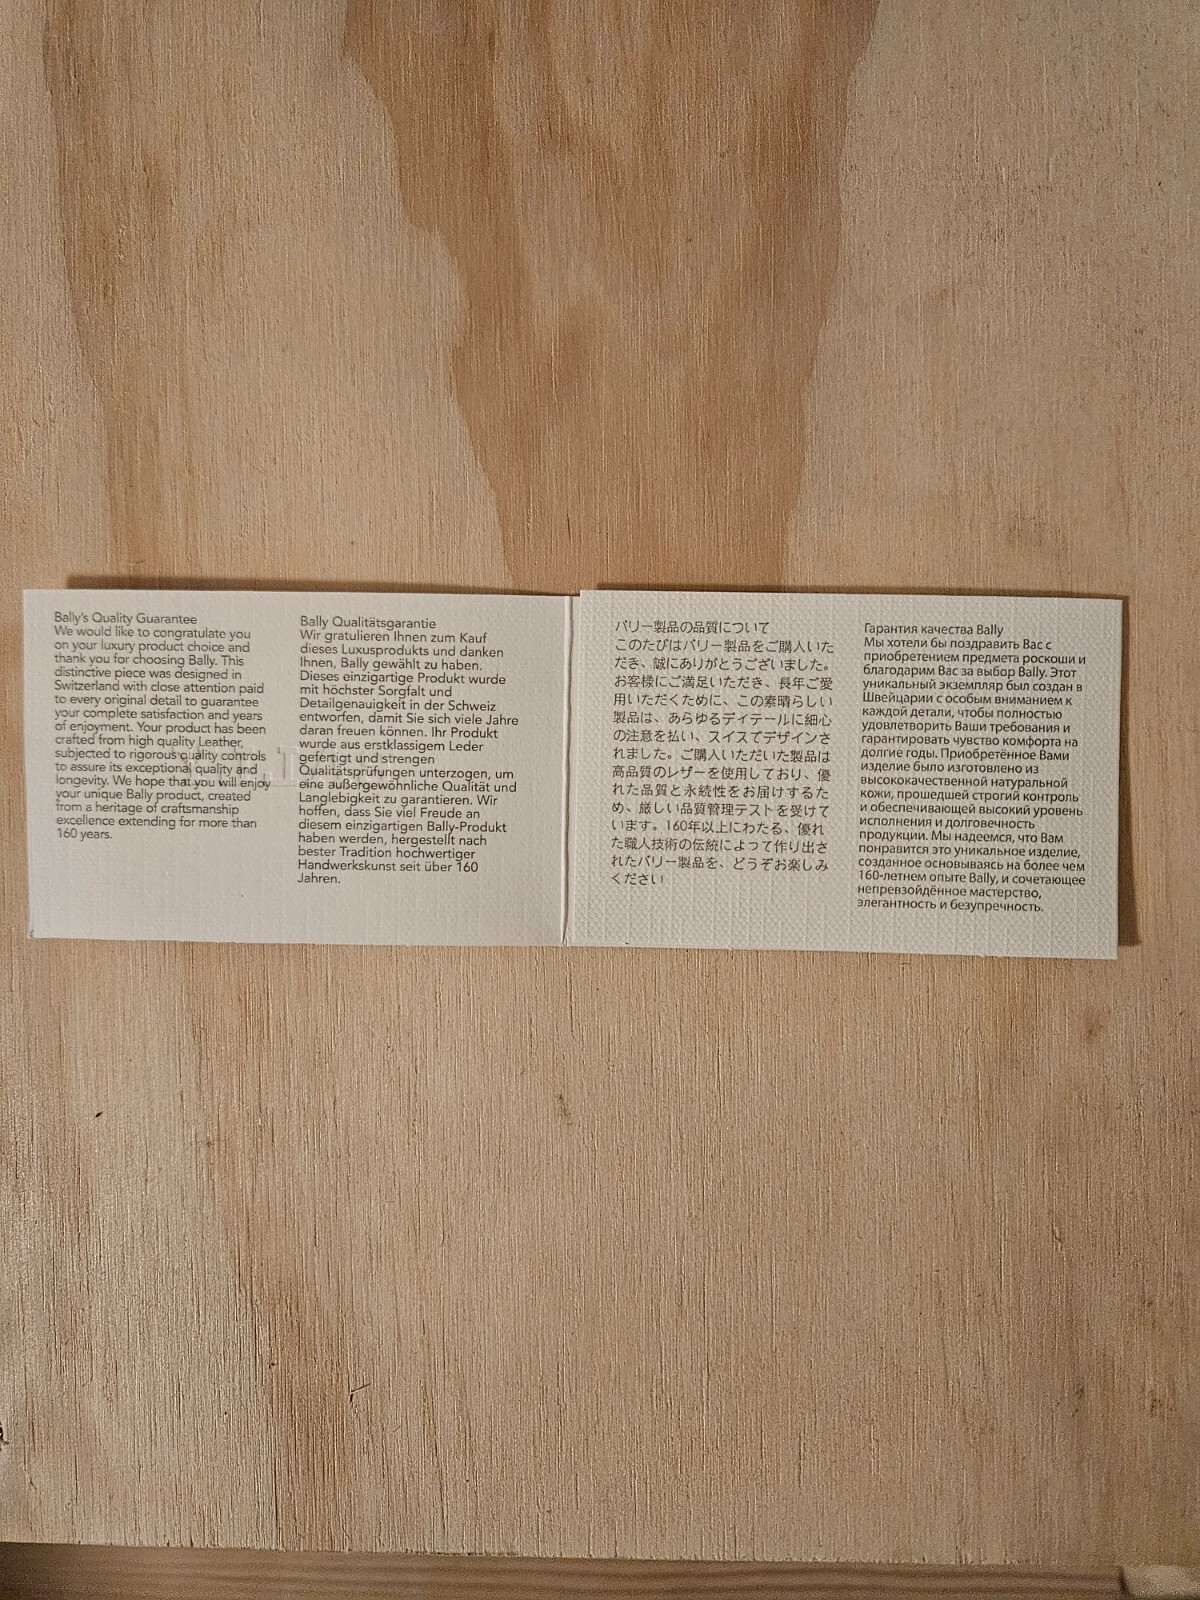 Bally's Quality Guarantee
We would like to congratulate you
on your luxury product choice and
thank you for choosing Bally. This
distinctive piece was designed in
Switzerland with close attention paid
to every original detail to guarantee
your complete satisfaction and years
of enjoyment. Your product has been
crafted from high quality Leather,
subjected to rigorous quality controls
to assure its exceptional quality and
longevity. We hope that you will enjoy
your unique Bally product, created
from a heritage of craftsmanship
excellence extending for more than
160 years.
Bally Qualitätsgarantie
Wir gratulieren Ihnen zum Kauf
dieses Luxusprodukts und danken
Ihnen, Bally gewählt zu haben.
Dieses einzigartige Produkt wurde
mit höchster Sorgfalt und
Detailgenauigkeit in der Schweiz
entworfen, damit Sie sich viele Jahre
daran freuen können. Ihr Produkt
wurde aus erstklassigem Leder
gefertigt und strengen
Qualitätsprüfungen unterzogen, um
eine außergewöhnliche Qualität und
Langlebigkeit zu garantieren. Wir
hoffen, dass Sie viel Freude an
diesem einzigartigen Bally-Produkt
haben werden, hergestellt nach
bester Tradition hochwertiger
Handwerkskunst seit über 160
Jahren.
バリー製品の品質について
このたびはバリー製品をご購入いた
だき、誠にありがとうございました。
お客様にご満足いただき、長年ご愛
用いただくために、この素晴らしい
製品は、あらゆるデイテールに細心
の注意を払い、スイスでデザインさ
れました。ご購入いただいた製品は
高品質のレザーを使用しており、優
れた品質と永続性をお届けするた
め、厳しい品質管理テストを受けて
います。160年以上にわたる、優れ
た職人技術の伝統によって作り出さ
れたバリー製品を、どうぞお楽しみ
ください
Гарантия качества Bally
Мы хотели бы поздравить Вас с
приобретением предмета роскоши и
благодарим Вас за выбор Bally. Этот
уникальный экземпляр был создан в
Швейцарии с особым вниманием к
каждой детали, чтобы полностью
удовлетворить Ваши требования и
гарантировать чувство комфорта на
долгие годы. Приобретённое Вами
изделие было изготовлено из
высококачественной натуральной
кожи, прошедшей строгий контроль
и обеспечивающей высокий уровень
исполнения и долговечность
продукции. Мы надеемся, что Вам
понравится это уникальное изделие,
созданное основываясь на более чем
160-летнем опыте Bally, и сочетающее
непревзойдённое мастерство,
элегантность и безупречность.